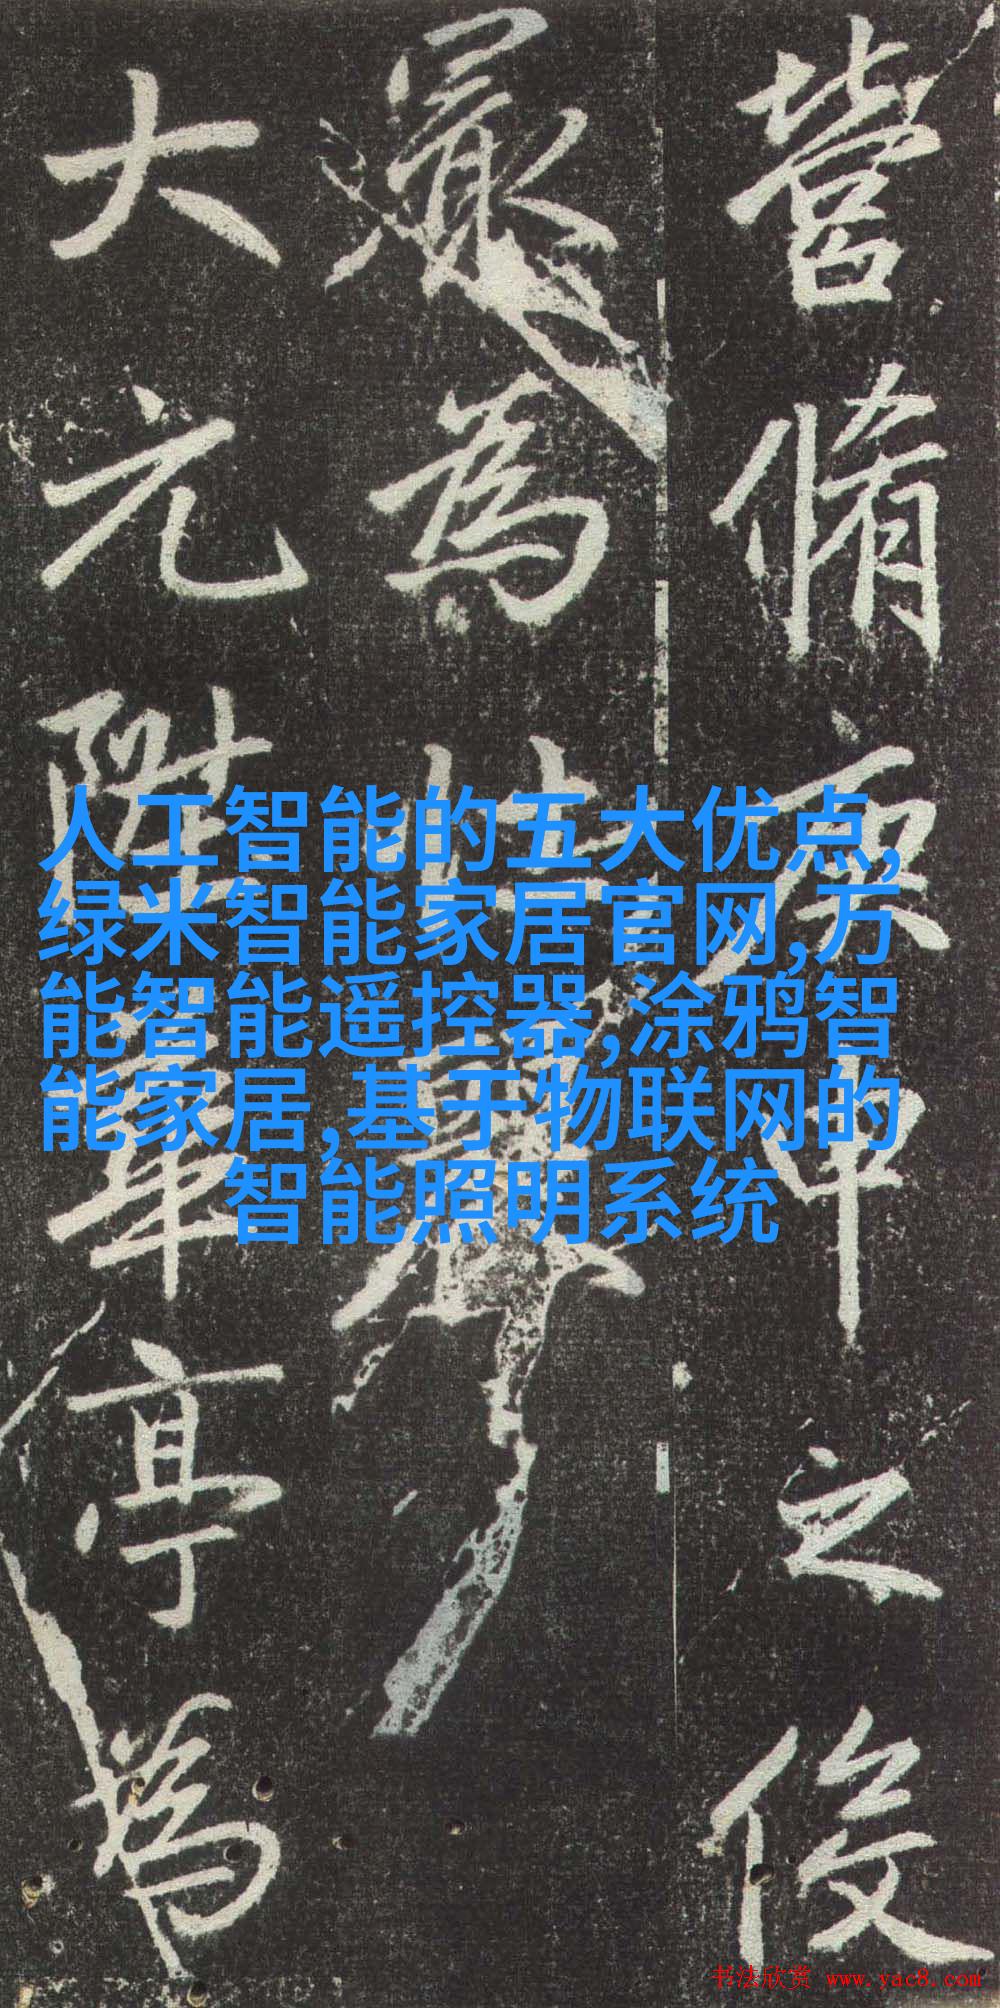 營脩之
為
大元陞華亭為
人工智能的五大优点,
绿米智能家居官网,万
能智能遥控器,涂鸦智
能家居,基于物联网的
智能照明系统
书法欣赏 www.yac8.com